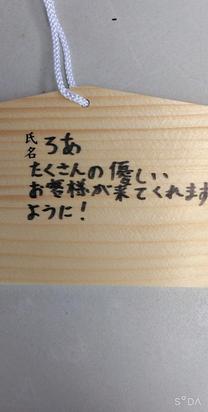 氏名 ろあ
たくさんの優しい
お客様が来てくれます
ように!
SODA